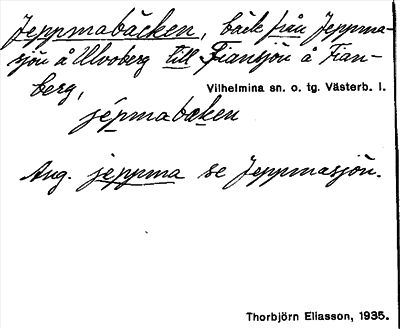 Jeppmabäcken, bäck från Jeppma-
sjön å Ulvoberg till Fiansjön å Fian-
berg,
Vilhelmina sn. o. tg. Västerb. l.
jépmabæken
Ang. jeppma se Jeppmasjön.
Thorbjörn Eliasson, 1935.